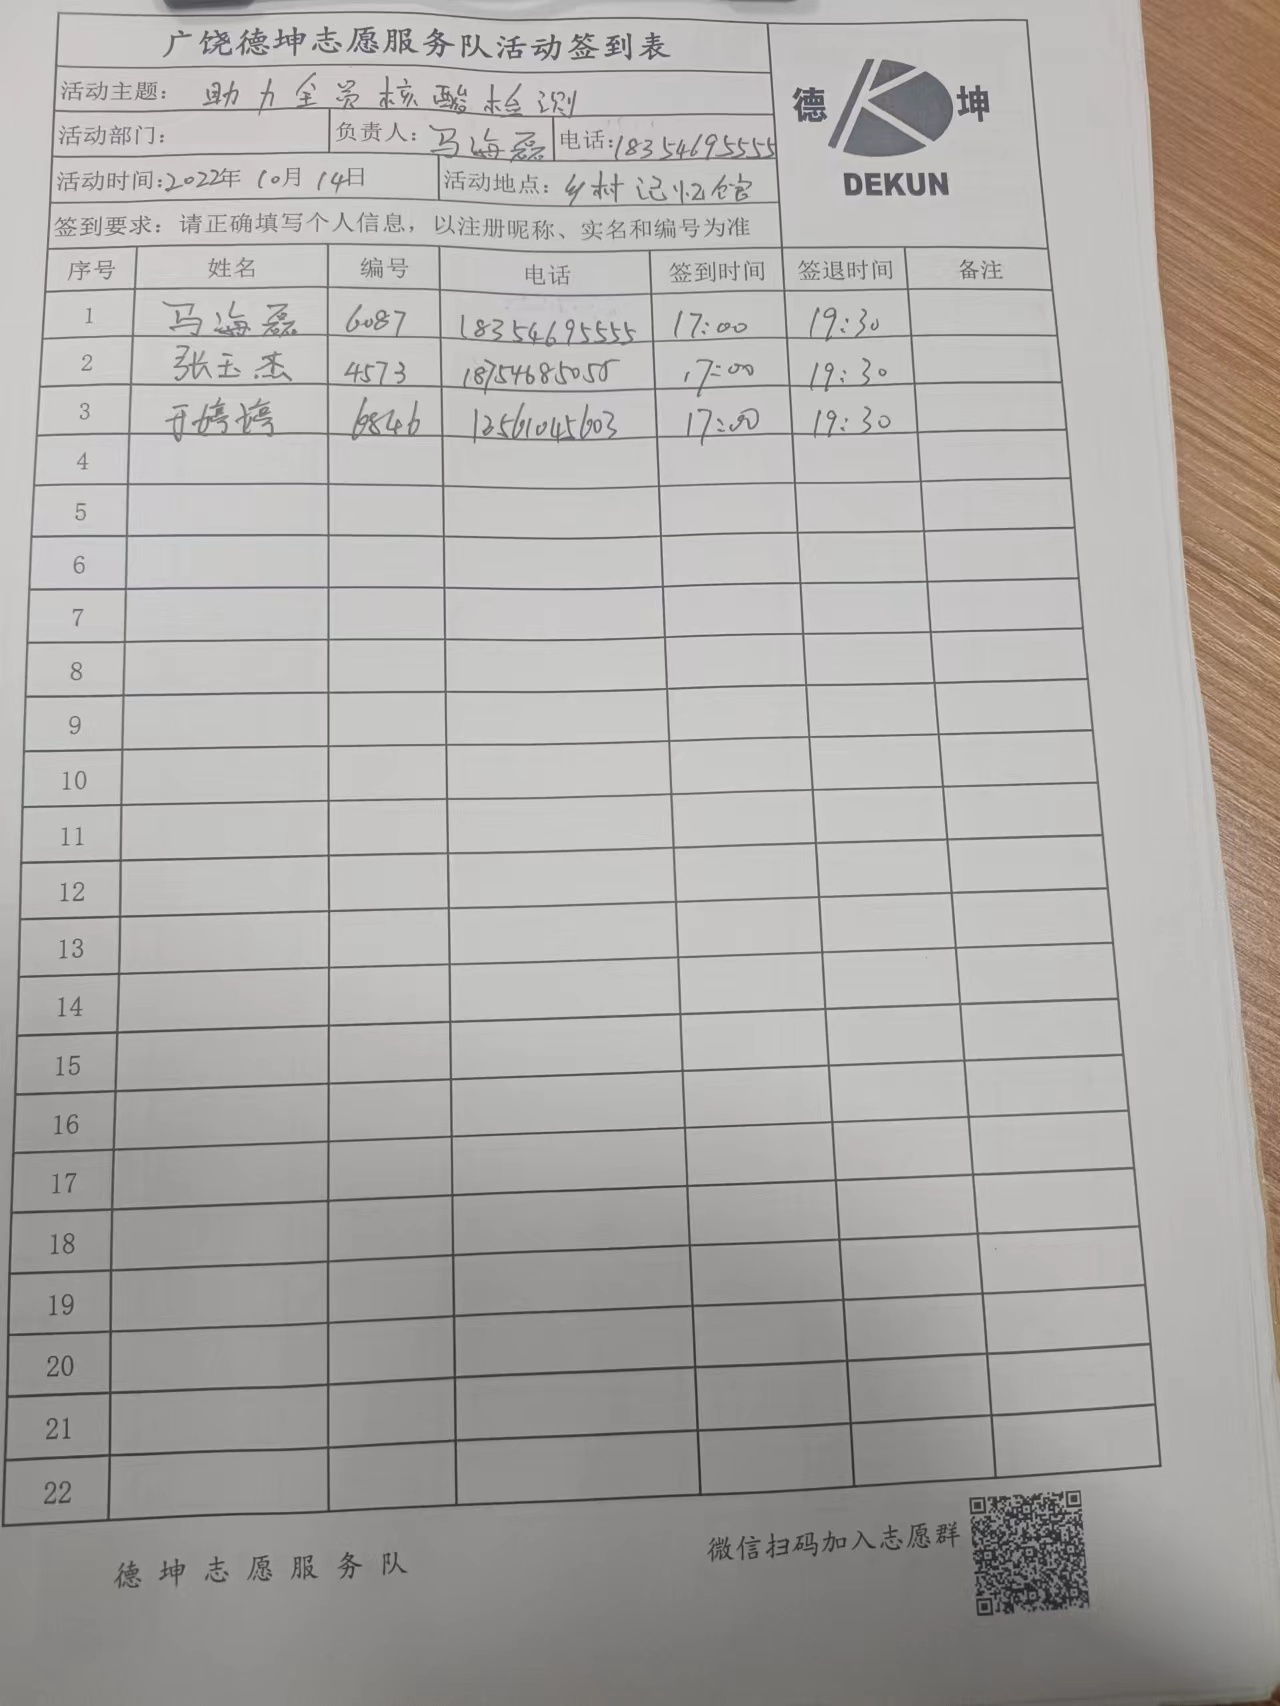 广饶德坤志愿服务队活动签到表
活动主题: 助力全员核酸检测
活动部门: 负责人: 马海磊 电话: 18354695555
活动时间: 2022年 10月 14日 活动地点: 乡村记忆馆
签到要求: 请正确填写个人信息, 以注册昵称、实名和编号为准
德 坤
DEKUN
序号 姓名 编号 电话 签到时间 签退时间 备注
1 马海磊 6087 18354695555 17:00 19:30
2 张玉杰 4573 18754685055 17:00 19:30
3 婷婷 6846 17:00 19:30
4
5
6
7
8
9
10
11
12
13
14
15
16
17
18
19
20
21
22
德坤志愿服务队
微信扫码加入志愿群